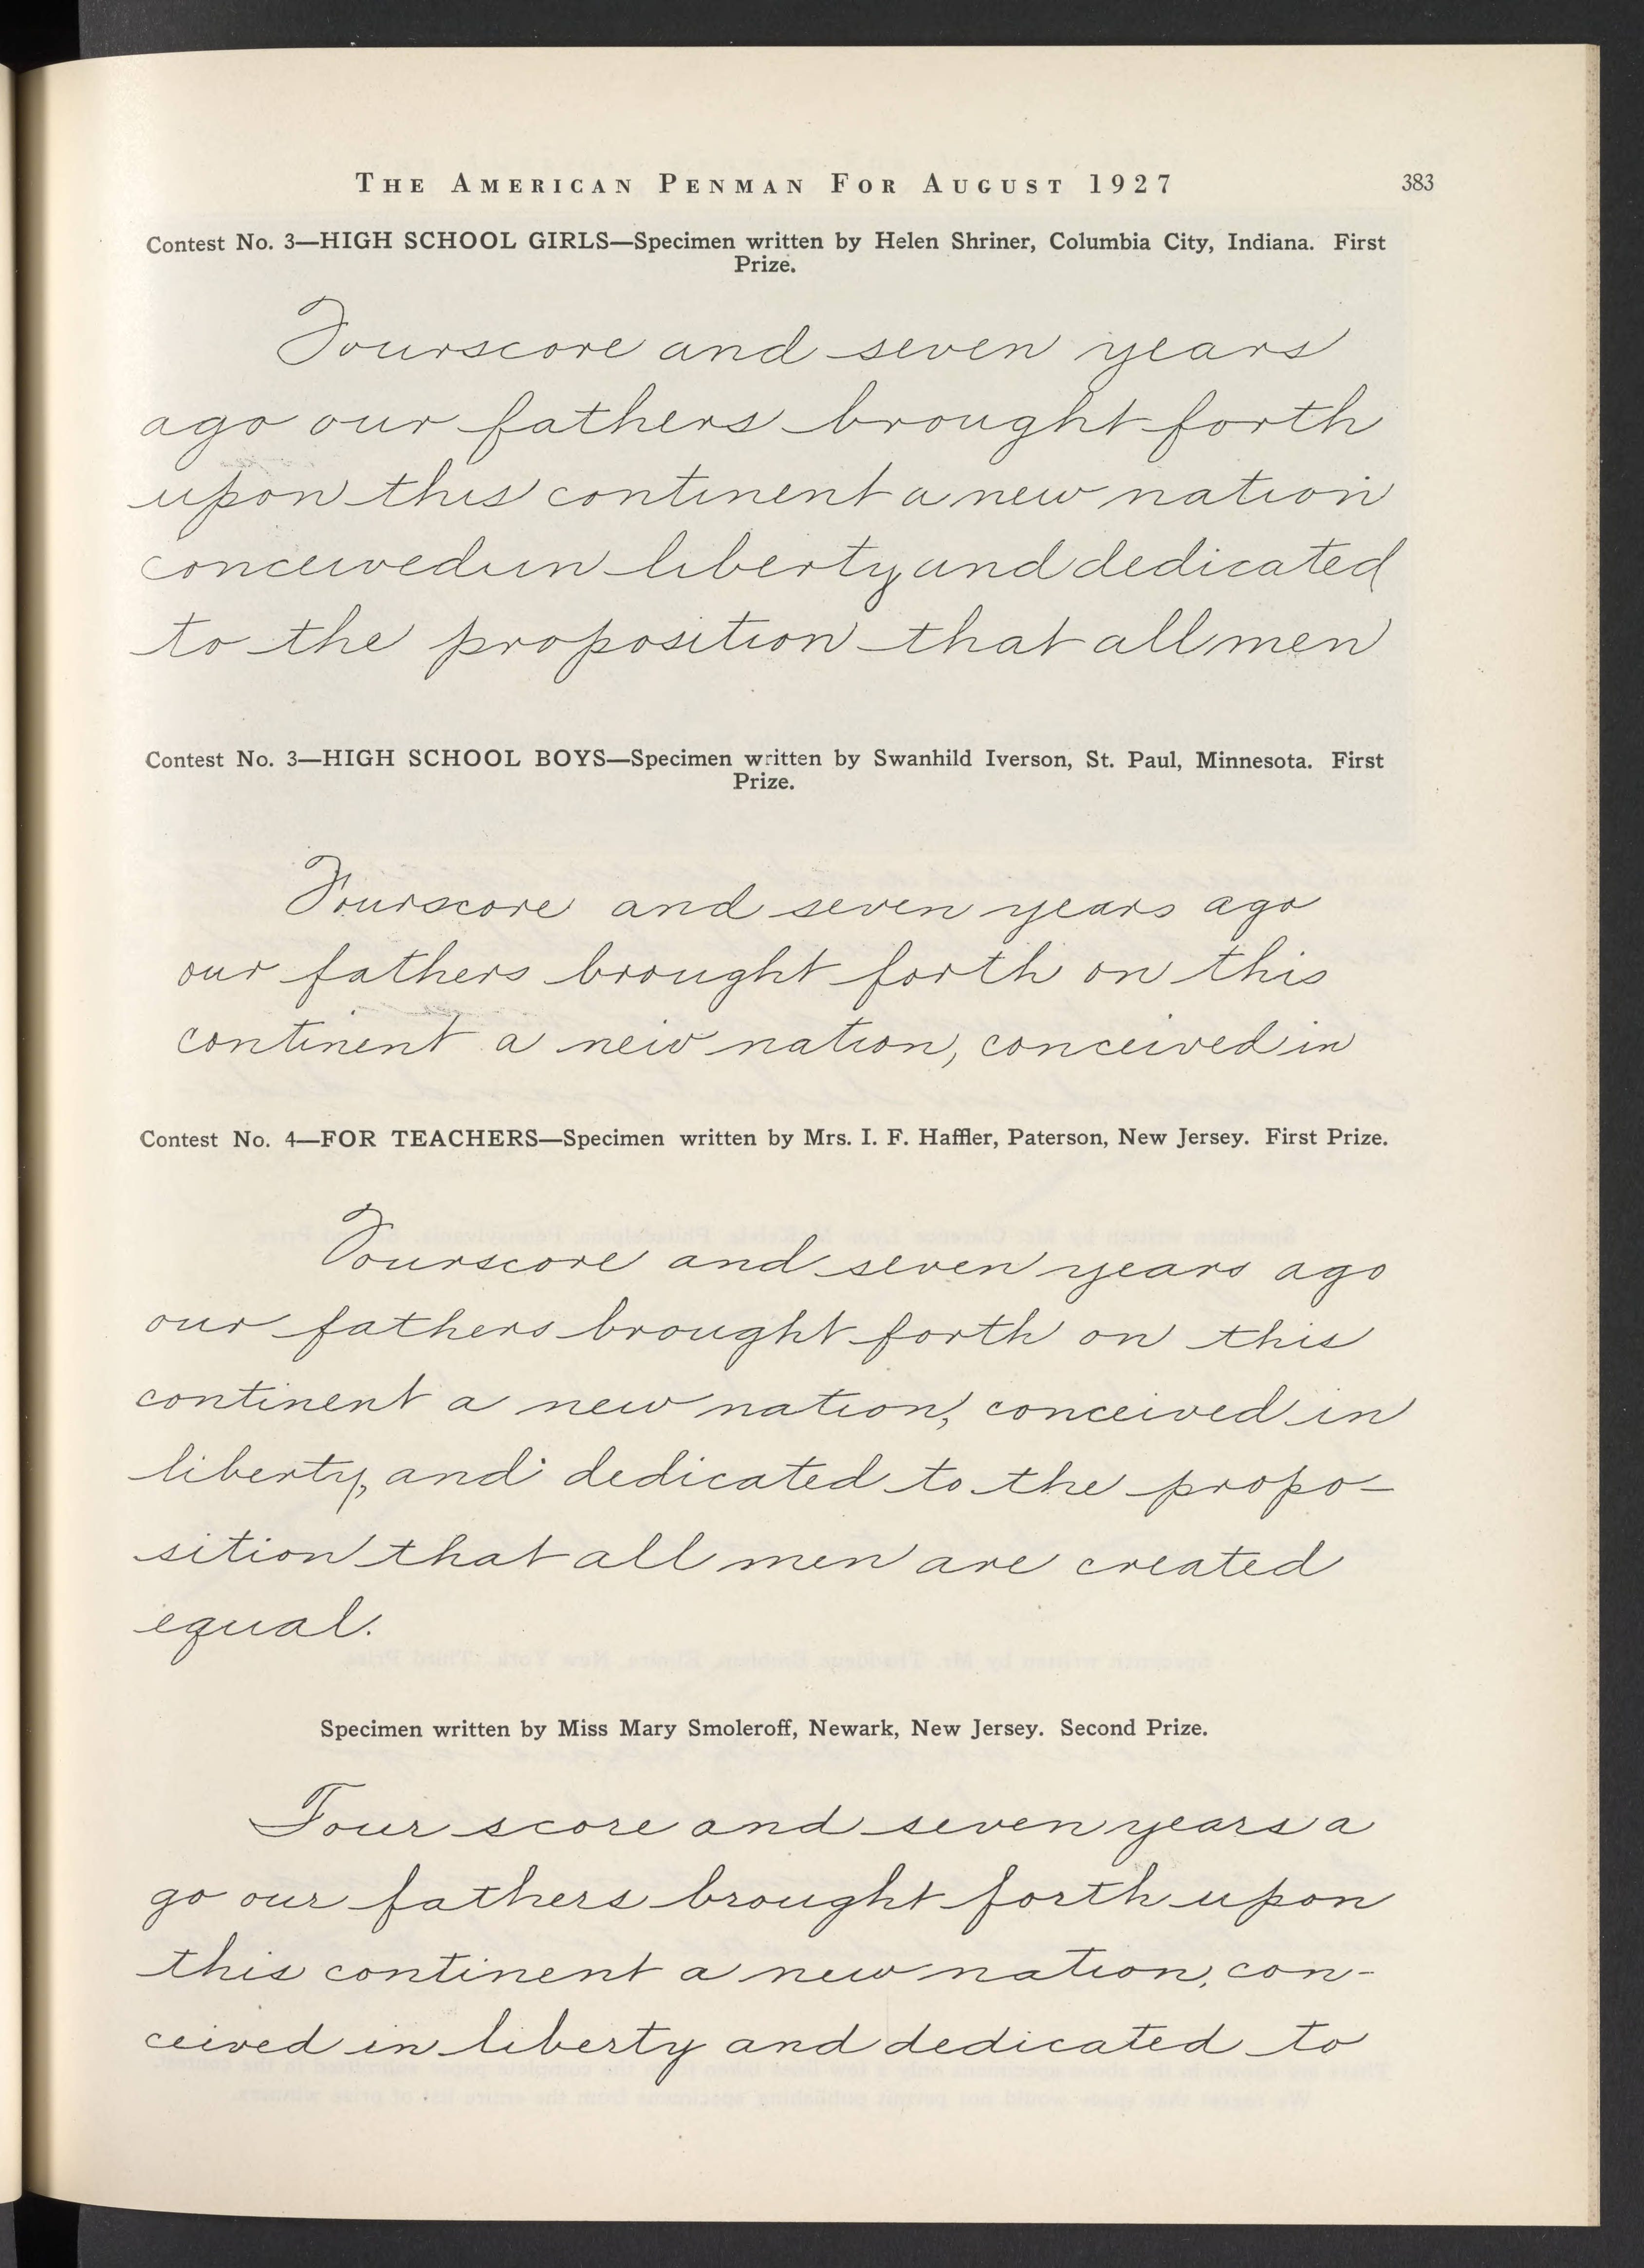 THE AMERICAN PENMAN FOR AUGUST 1927 383
Contest No. 3—HIGH SCHOOL GIRLS—Specimen written by Helen Shriner, Columbia City, Indiana. First
Prize.
Fourscore and seven years
ago our fathers brought forth
upon this continent a new nation
conceived in liberty and dedicated
to the proposition that all men
Contest No. 3—HIGH SCHOOL BOYS—Specimen written by Swanhild Iverson, St. Paul, Minnesota. First
Prize.
Fourscore and seven years ago
our fathers brought forth on this
continent a new nation, conceived in
Contest No. 4—FOR TEACHERS—Specimen written by Mrs. I. F. Haffler, Paterson, New Jersey. First Prize.
Fourscore and seven years ago
our fathers brought forth on this
continent a new nation, conceived in
liberty, and dedicated to the propo-
sition that all men are created
equal.
Specimen written by Miss Mary Smoleroff, Newark, New Jersey. Second Prize.
Four score and seven years a
go our fathers brought forth upon
this continent a new nation, con-
ceived in liberty and dedicated to